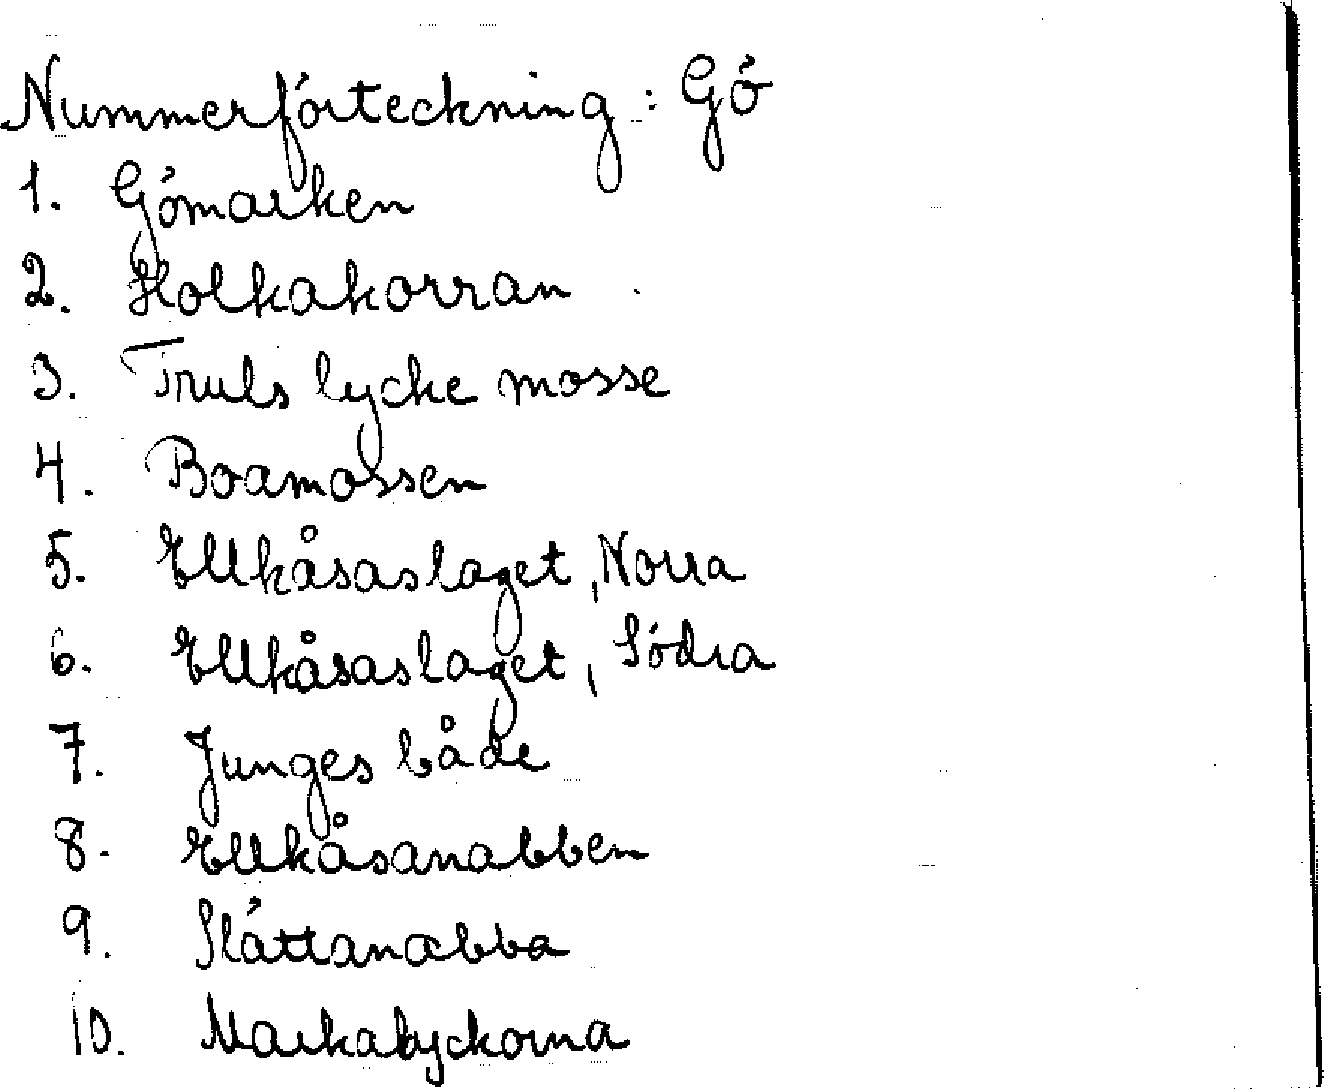 Nummerförteckning: Gö
1. Gömarken
2. Holkakorran
3. Truls lycke mosse
4. Boamossen
5. Ellkåsaslaget, Norra
6. Ellkåsaslaget, Södra
7. Junges både
8. Ellkåsanabben
9. Slättanabba
10. Markalyckorna